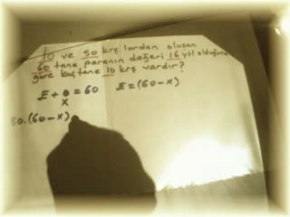 10 ve 50 krş lardan oluşan
60 tane paranın değeri 16 ytl olduğuna
göre kaç tane 10 krş vardır?
E + θ = 60 E = (60 - x)
x
50.(60-x)